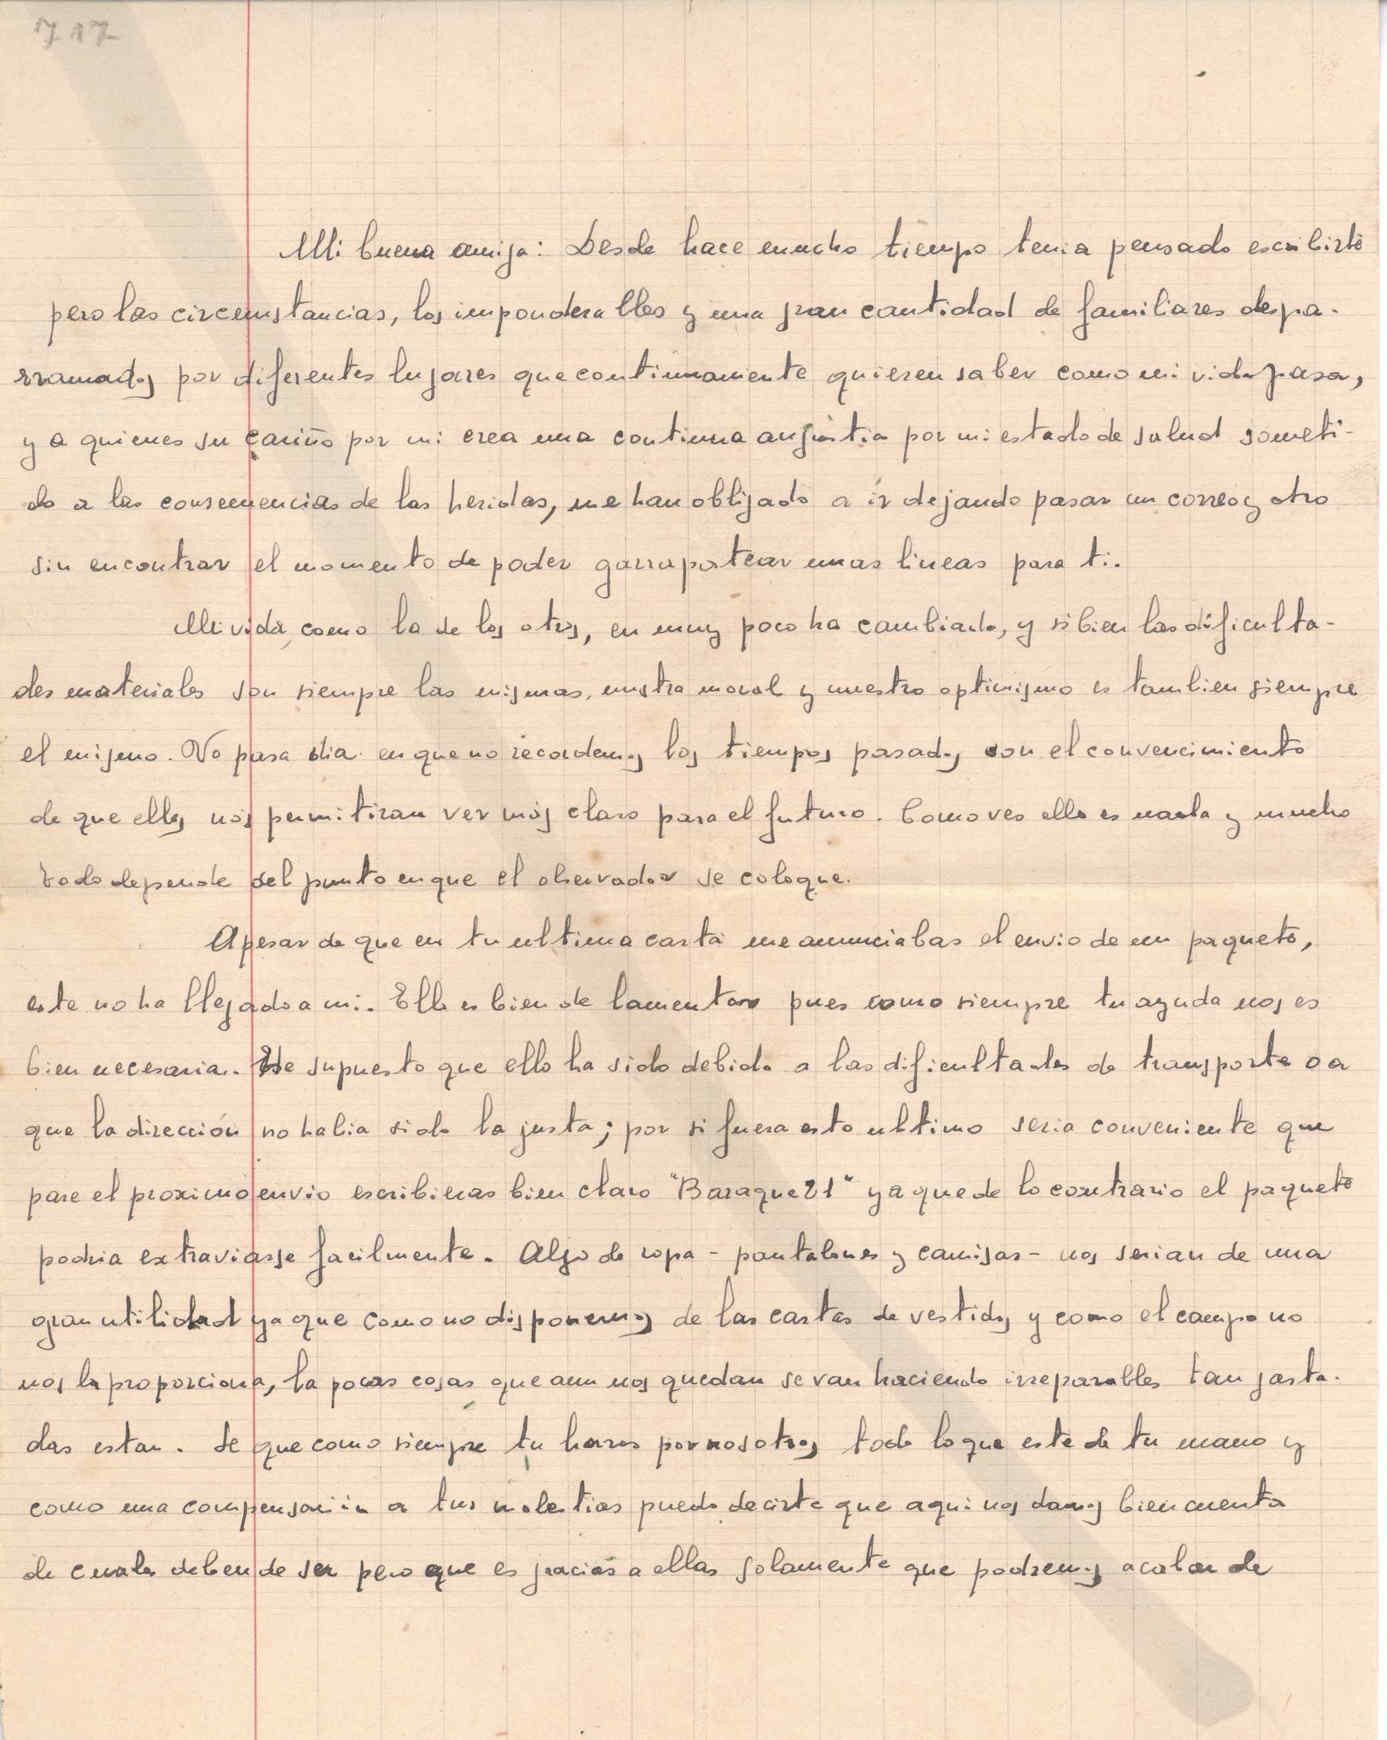 717
Mi buena amiga: Desde hace mucho tiempo tenia pensado escribirte
pero las circunstancias, los imponderables y una gran cantidad de familiares despa-
rramados por diferentes lugares que continuamente quieren saber como mi vida pasa,
y a quienes su cariño por mi crea una continua angustia por mi estado de salud someti-
do a las consecuencias de las heridas, me han obligado a ir dejando pasar un correo y otro
sin encontrar el momento de poder garrapatear unas lineas para ti.
Mi vida, como la de los otros, en muy poco ha cambiado, y si bien las dificulta-
des materiales son siempre las mismas, nustra moral y nuestro optimismo es tambien siempre
el mismo. No pasa dia en que no recordemos los tiempos pasados con el convencimiento
de que ellos nos permitiran ver más claro para el futuro. Como ves ello es nada y mucho
todo depende del punto en que el observador se coloque.
Apesar de que en tu ultima carta me anunciabas el envio de un paquete,
este no ha llegado a mi. Ello es bien de lamentar pues como siempre tu ayuda nos es
bien necesaria. He supuesto que ello ha sido debido a las dificultades de transporte o a
que la dirección no habia sido la justa; por si fuera esto ultimo seria conveniente que
para el proximo envio escribieras bien claro "Baraque 21" ya que de lo contrario el paquete
podria extraviarse facilmente. Algo de ropa - pantalones y camisas - nos serian de una
gran utilidad ya que como no disponemos de las cartas de vestidos y como el campo no
nos la proporciona, la pocas cosas que aun nos quedan se van haciendo irreparables tan gasta-
das estan. Se que como siempre tu haras por nosotros todo lo que este de tu mano y
como una compensación a tus molestias puedo decirte que aqui nos damos bien cuenta
de cuales deben de ser pero que es gracias a ellas solamente que podremos acabar de